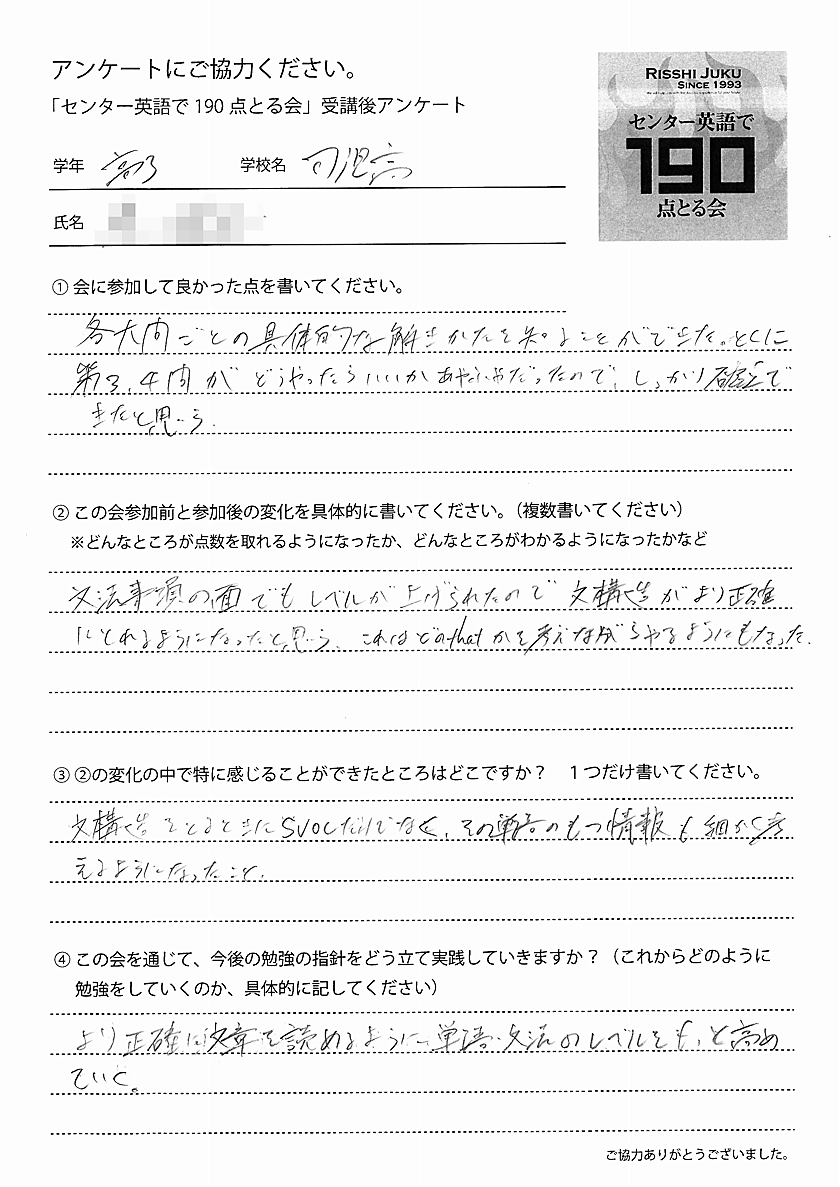 アンケートにご協力ください。
「センター英語で190点とる会」受講後アンケート
RISSHI JUKU
SINCE 1993
センター英語で
190
点とる会
学年 高3 学校名 可児高
氏名
① 会に参加して良かった点を書いてください。
各大問ごとの具体的な解きかたを知ることができた。とくに
第3,4問がどうやったらいいかあやふやだったので、しっかり確立で
きたと思う。
② この会参加前と参加後の変化を具体的に書いてください。（複数書いてください）
※どんなところが点数を取れるようになったか、どんなところがわかるようになったかなど
文法事項の面でもレベルが上げられたので文構造がより正確
にとれるようになったと思う。これはどのthatかを考えながらやるようにもなった。
③ ②の変化の中で特に感じることができたところはどこですか？ 1つだけ書いてください。
文構造をとるときにSVOCだけでなく、その単語のもつ情報も細かく考
えるようになったこと。
④ この会を通じて、今後の勉強の指針をどう立て実践していきますか？（これからどのように
勉強をしていくのか、具体的に記してください）
より正確に文章を読めるように、単語・文法のレベルをもっと高め
ていく。
ご協力ありがとうございました。